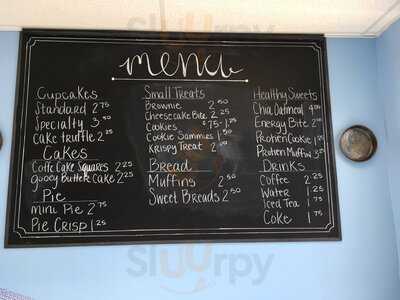 menu
Cupcakes
Standard 2 75
Specialty 3 50
Cake truffle 2 25
Cakes
Coffe Cake Squares 2 25
gooey Butter Cake 2 25
Pie
mini Pie 2 75
Pie Crisp 1 25
Small Treats
Brownie 2 50
Cheesecake Bite 2 25
Cookies .75-1 25
Cookie Sammies 1 50
Krispy Treat 2 00
Bread
Muffins 2 50
Sweet Breads 2 50
Healthy Sweets
Chia Oatmeal 4 00
Energy Bite 2 00
Protien Cookie 1
Protien Muffin 3
Drinks
Coffee 2 25
Water 1 25
Iced Tea 1 75
Coke 1 75
Slurpy
Slurpy